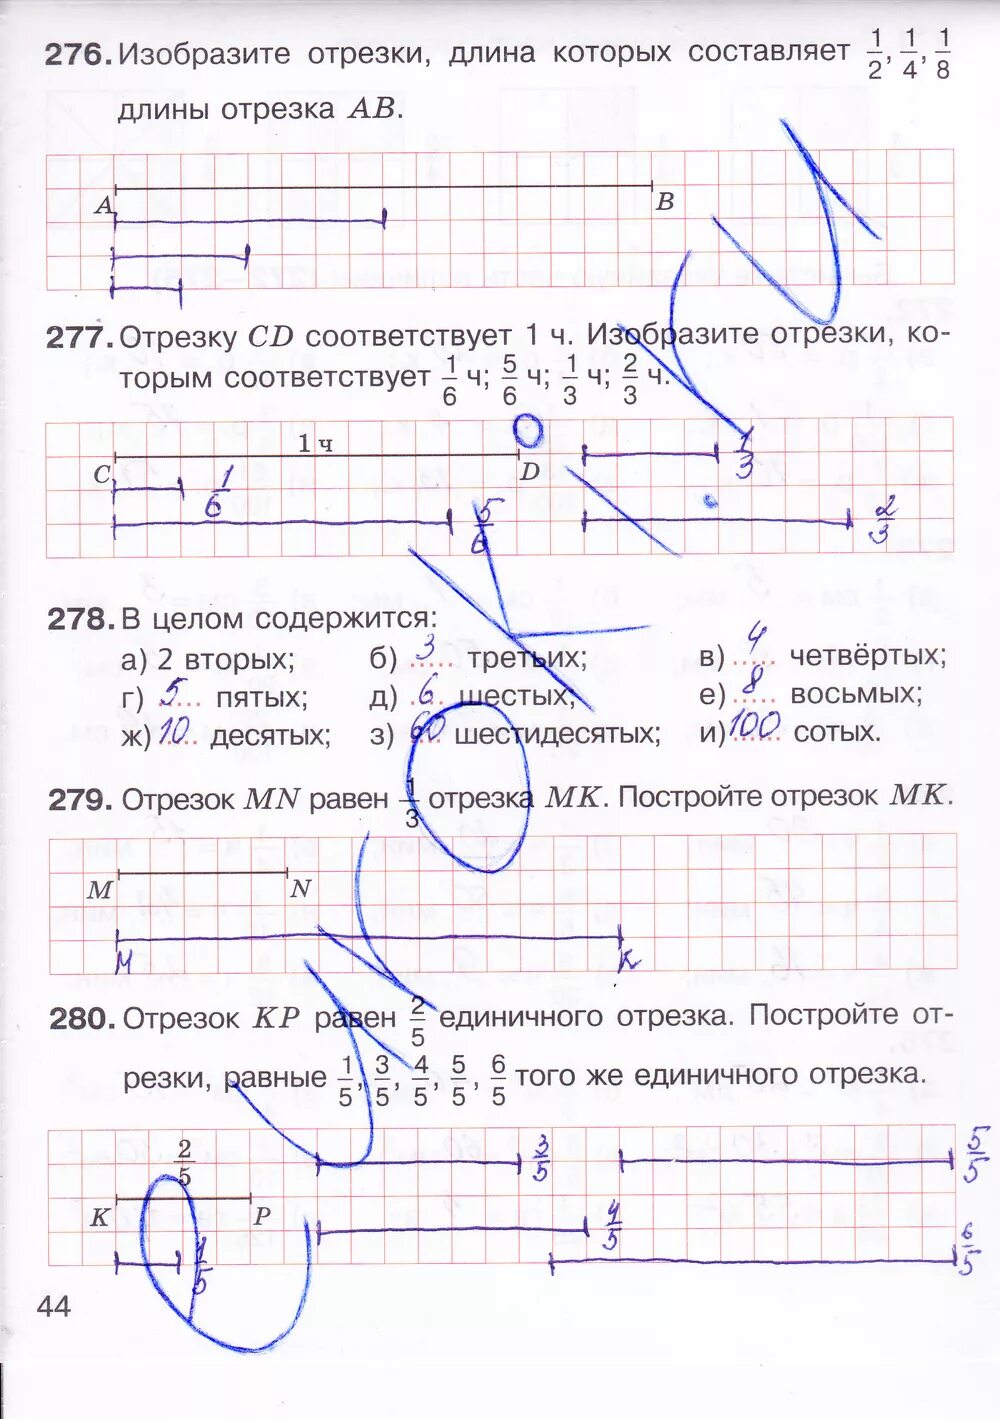 276. Изобразите отрезки, длина которых составляет 1/2, 1/4, 1/8
длины отрезка AB.
A B
277. Отрезку CD соответствует 1 ч. Изобразите отрезки, ко-
торым соответствует 1/6 ч; 5/6 ч; 1/3 ч; 2/3 ч.
1 ч
C D
1/3
1/6
5/6 2/3
278. В целом содержится:
а) 2 вторых; б) 3 третьих; в) 4 четвёртых;
г) 5 пятых; д) 6 шестых; е) 8 восьмых;
ж) 10 десятых; з) 60 шестидесятых; и) 100 сотых.
279. Отрезок MN равен 1/3 отрезка MK. Постройте отрезок MK.
M N
M K
280. Отрезок KP равен 2/5 единичного отрезка. Постройте от-
резки, равные 1/5, 3/5, 4/5, 5/5, 6/5 того же единичного отрезка.
2/5 3/5 5/5
K P 4/5
1/5 6/5
44